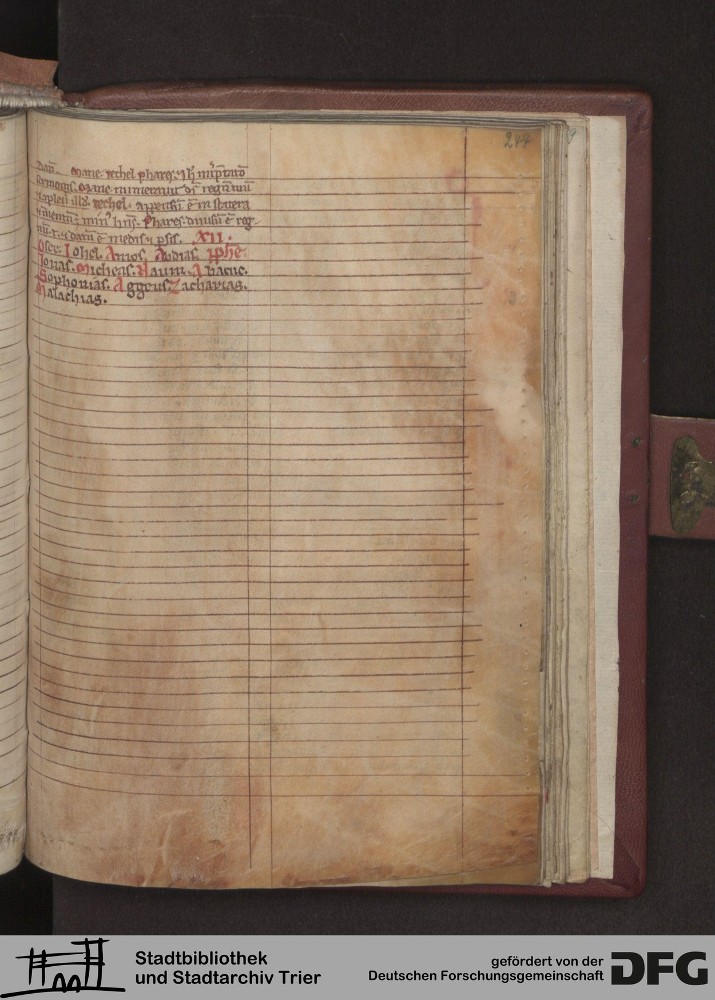 244
Mane. techel. phares. Ih̄
sermonis. Mane numeravit d̄s regn̄ tuū
illḋ. techel. appensū ē in statera
min hn̄s. Phares. divisū ē reg-
nū t. datū ē medis psis. XII.
Osee. Iohel. Amos. Abdias. pphe.
Ionas. Micheas. Naum. Abacuc.
Sophonias. Aggeus. Zacharias.
Malachias.
Stadtbibliothek
und Stadtarchiv Trier
gefördert von der
Deutschen Forschungsgemeinschaft
DFG